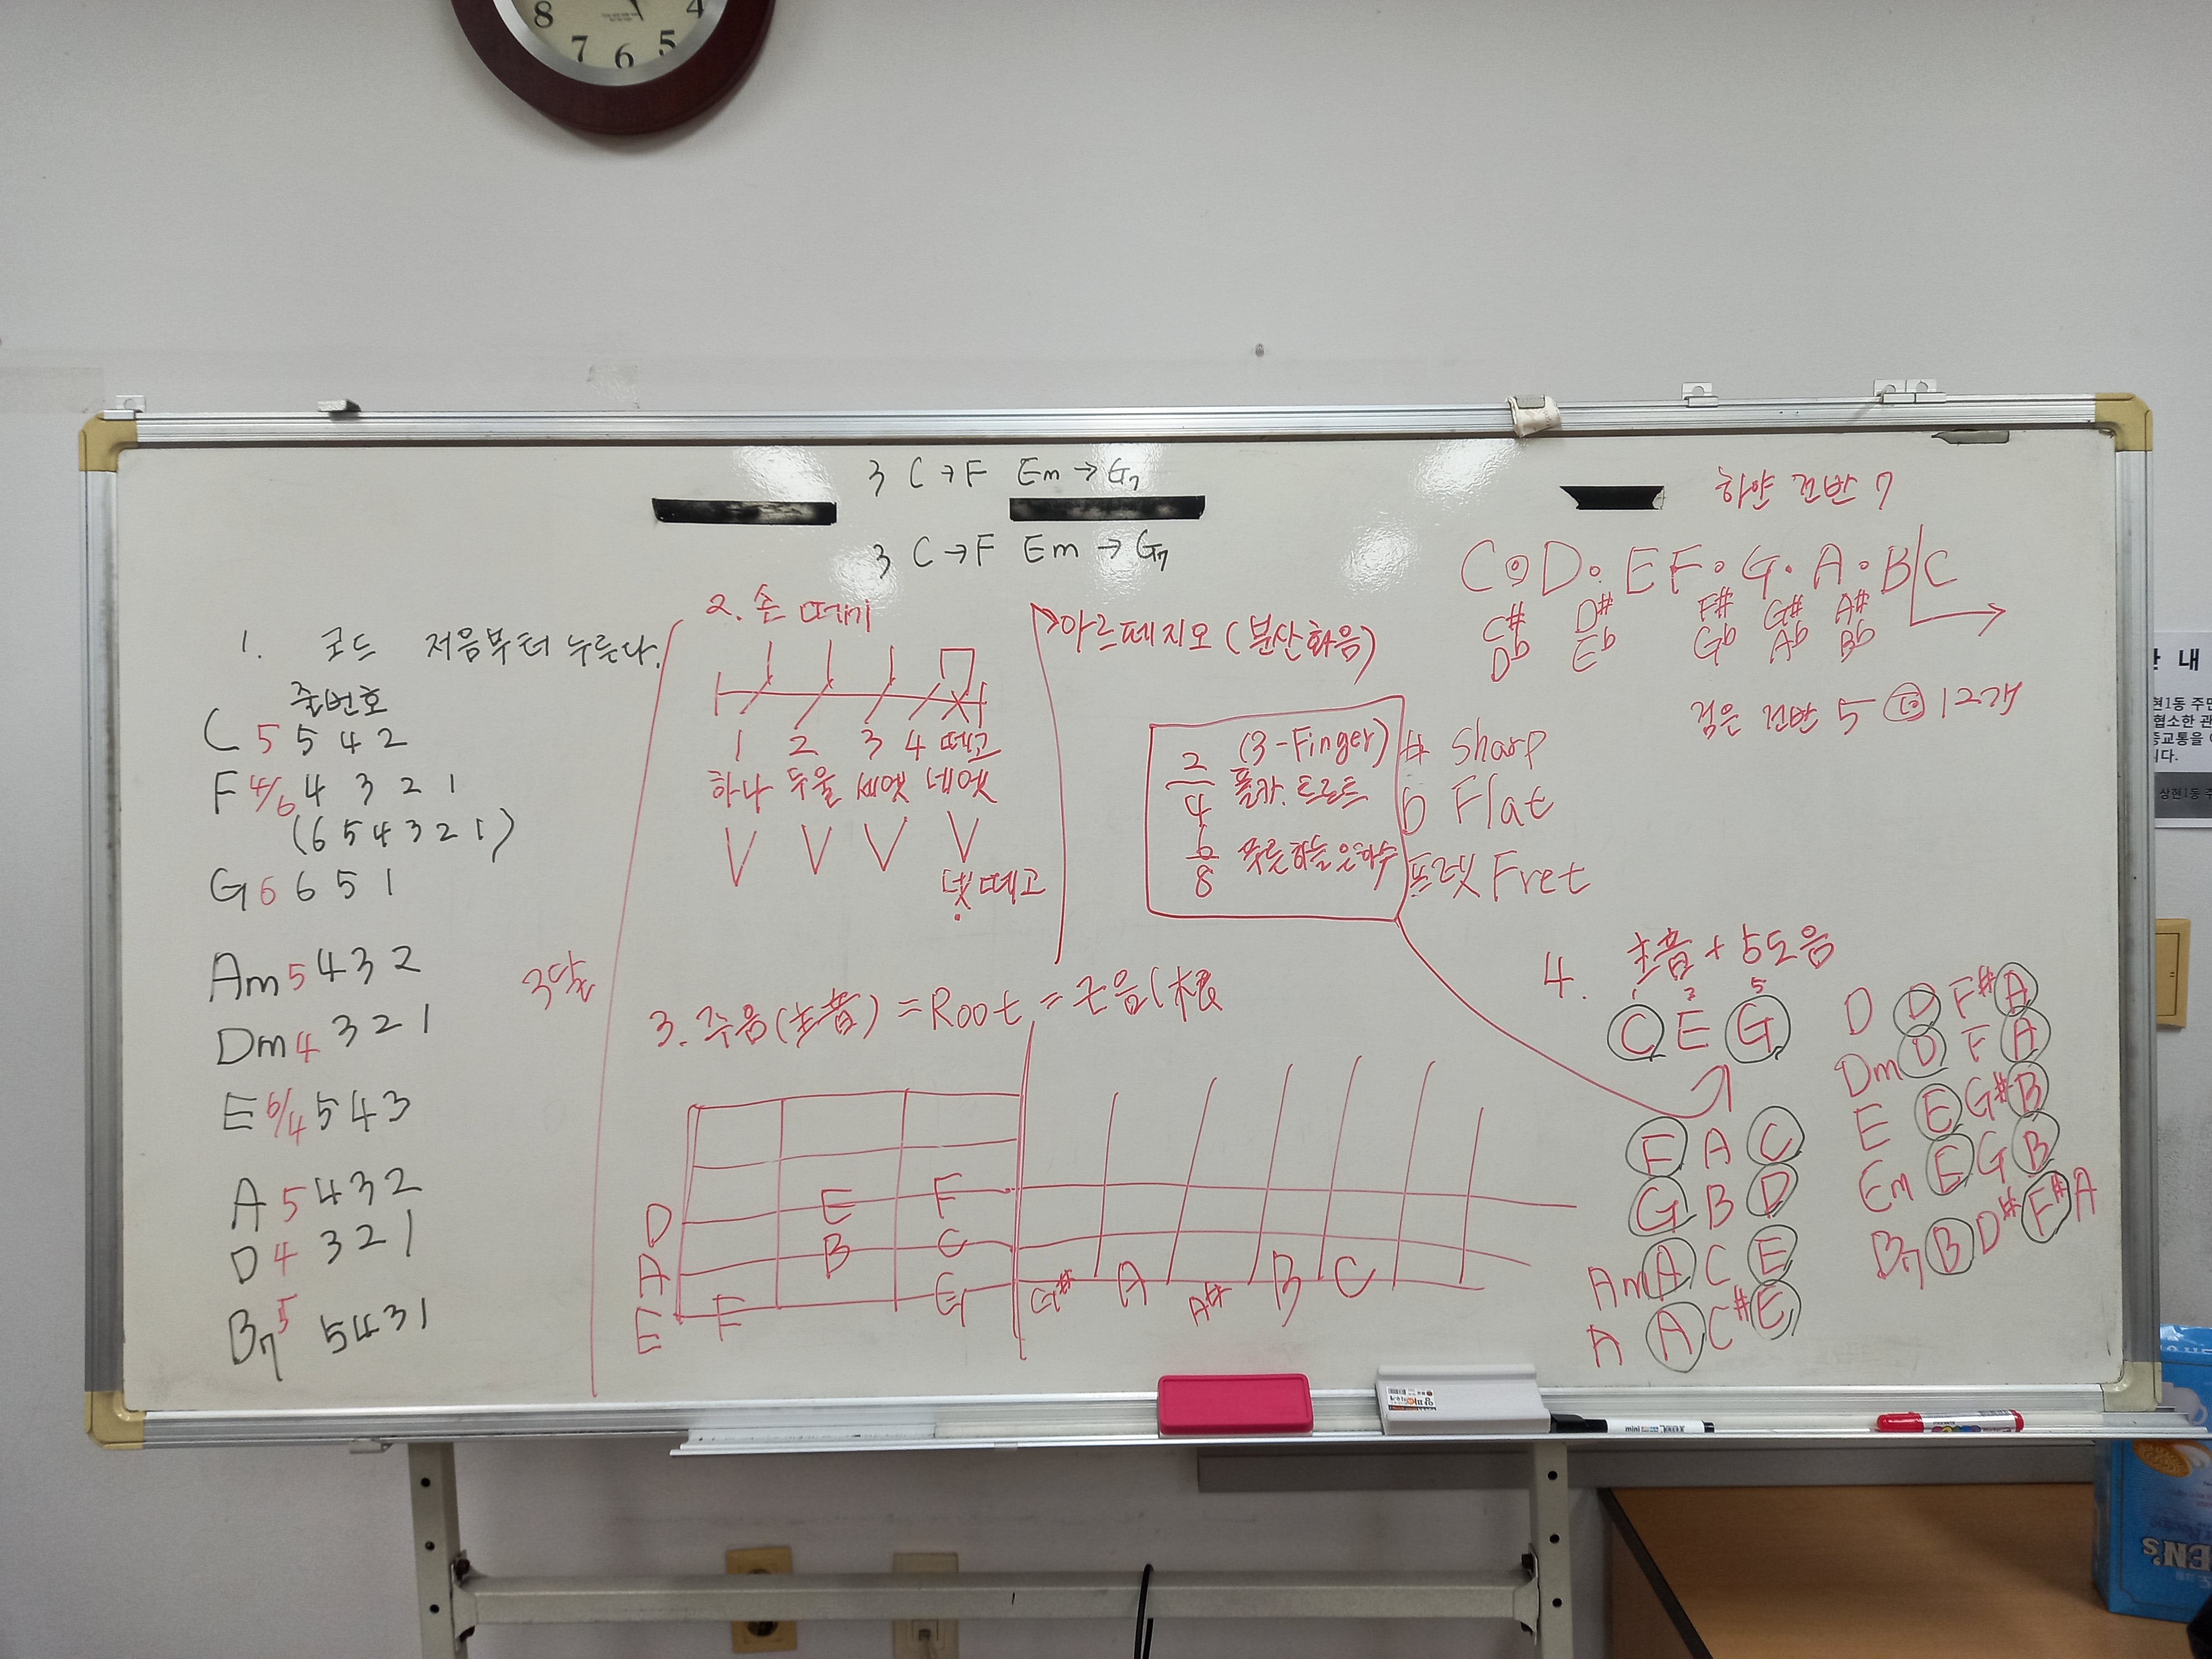 8 7 6 5 4
3 C→F Em→G7
3 C→F Em→G7
1. 코드 저음부터 누른다.
줄번호
C 5 5 4 2
F 4/6 4 3 2 1
(6 5 4 3 2 1)
G 6 6 5 1
Am 5 4 3 2
Dm 4 3 2 1
E 6/4 5 4 3
A 5 4 3 2
D 4 3 2 1
B7 5 5 4 3 1
2. 손 떼기
1 2 3 4 떼고
하나 두울 세엣 네엣
V V V V
넷 떼고
아르떼지오 (분산화음)
2/4 (3-Finger)
폴카. 트로트
6/8 푸른하늘은하수
# Sharp
b Flat
프렛 Fret
3. 주음(主音) = Root = 근음(根
D E F
A B C
E F G G# A A# B C
하얀 건반 7
C D E F G A B C
C# D# F# G# A#
Db Eb Gb Ab Bb
검은 건반 5 12개
4. 主音 + 5도음
1 3 5
C E G
F A C
G B D
Am A C E
A A C# E
D D F# A
Dm D F A
E E G# B
Em E G B
B7 B D# F# A
안 내
상현1동
mini
EN's